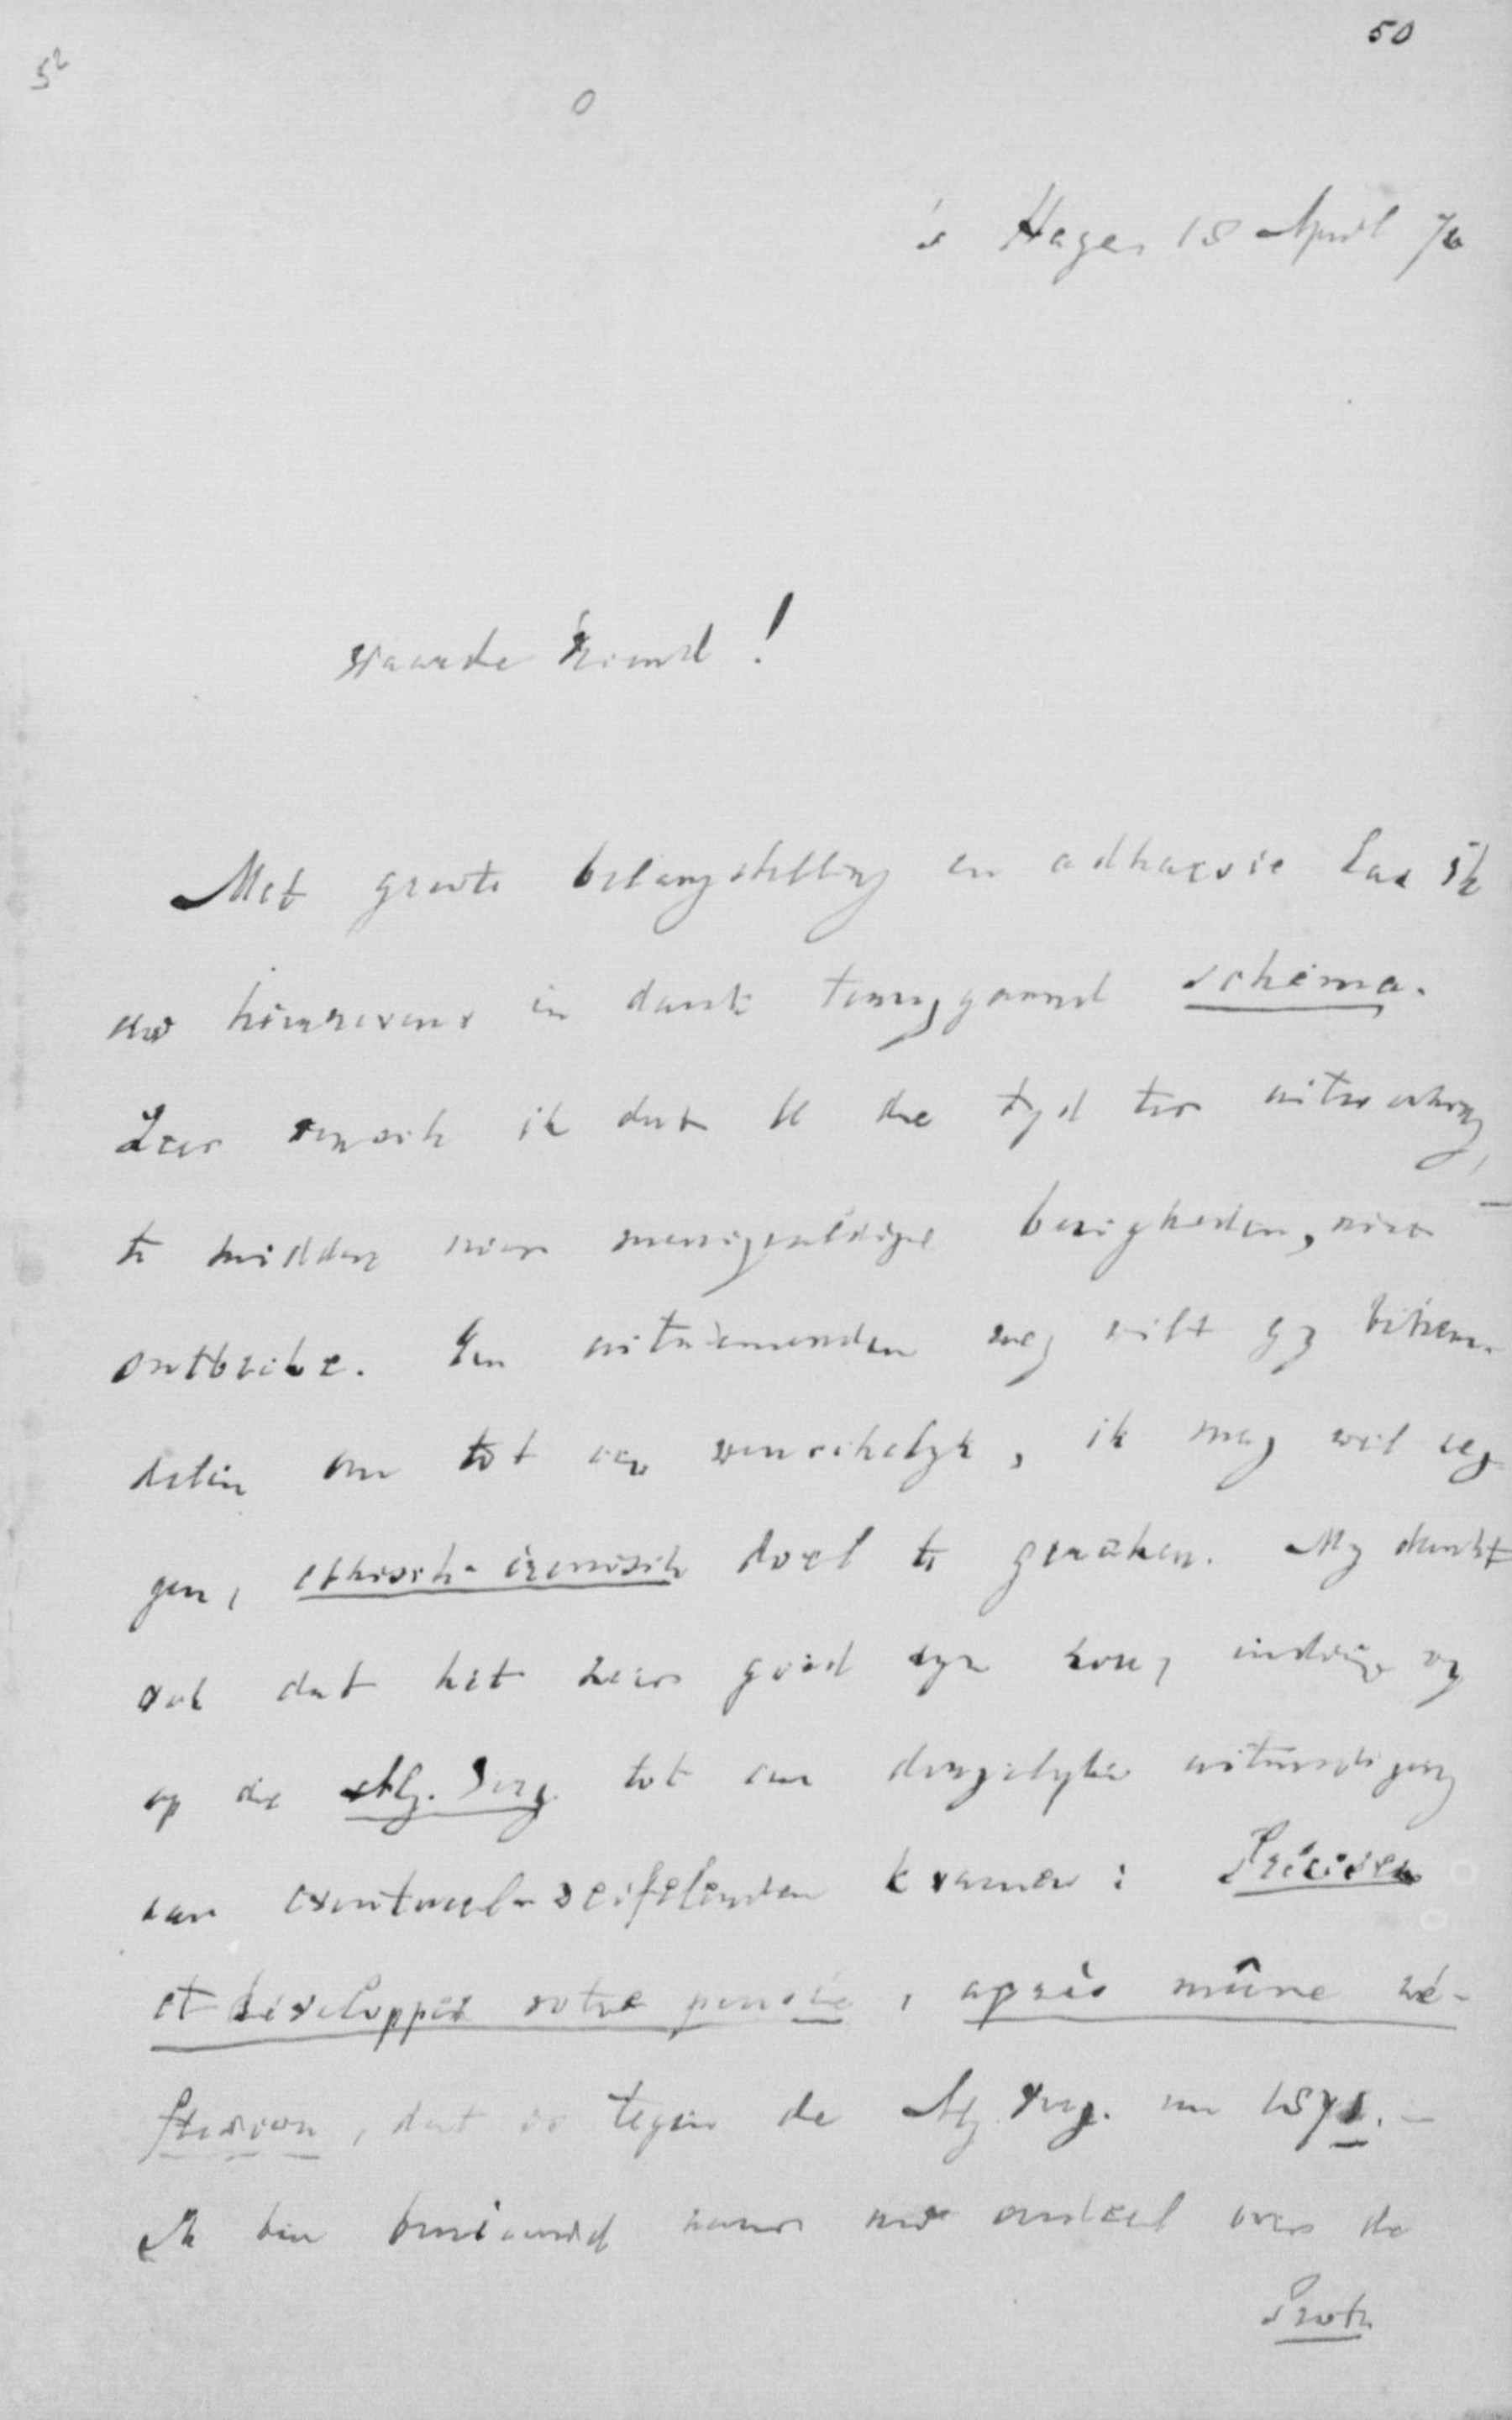 50
52
's Hage, 18 April 70
Waarde Vriend!
Met groote belangstelling en adhaesie las ik
uw hiernevens in dank teruggaand schema.
Zeer wensch ik dat U de tyd ter uitwerking,
te midden uwer menigvuldige bezigheden, niet
ontbreke. Een uitnemenden weg wilt gy bewan-
delen om tot een wenschelyk, ik mag wel zeg-
gen, ethisch-irenisch doel te geraken. My dunkt
ook dat het zeer goed zyn zou, indien wy
op die Alg. Verg. tot een dergelyke uitnoodiging
aan eventueel-weifelenden kwamen: Précisez
et développez votre pensée, après mûre ré-
flexion, dat is tegen de Alg. Verg. van 1871. -
Ik ben benieuwd naar uw oordeel over de
Prote